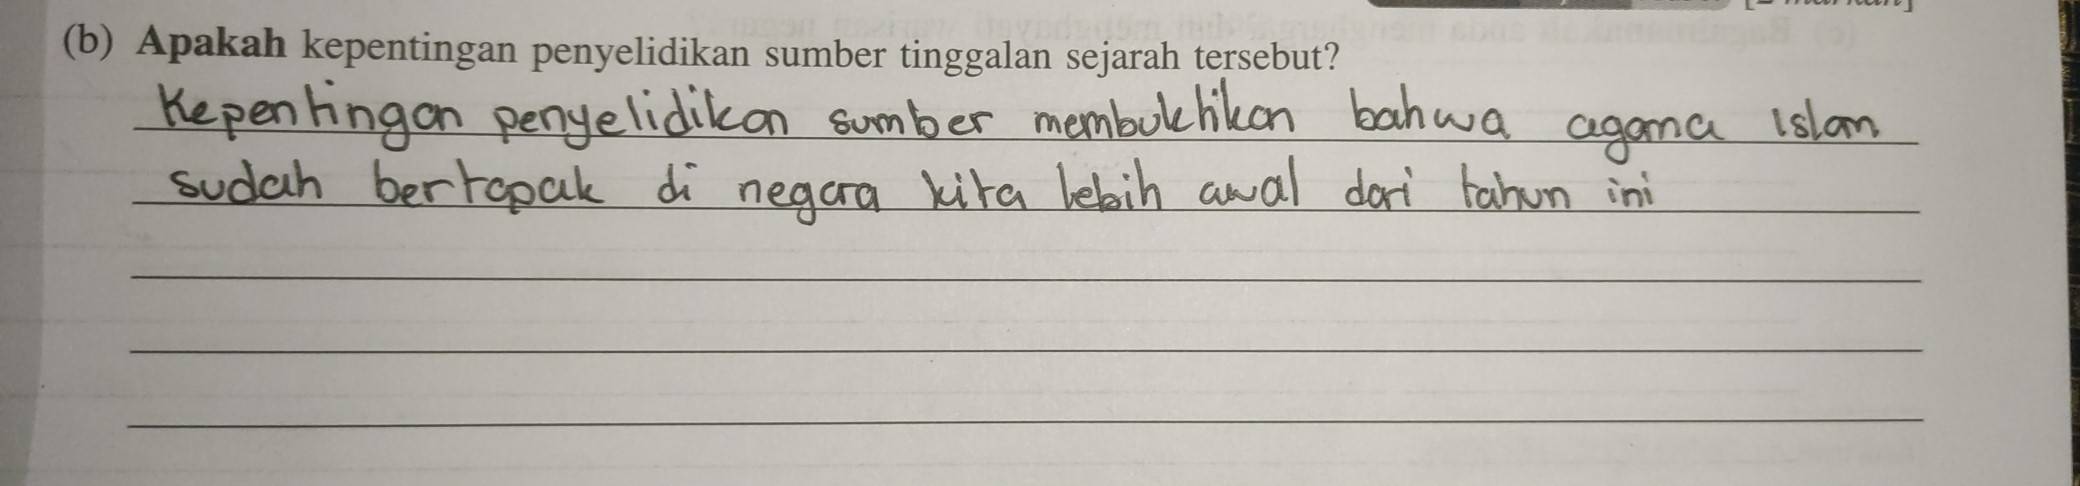 (b) Apakah kepentingan penyelidikan sumber tinggalan sejarah tersebut?
Kepentingan penyelidikan sumber membuktikan bahwa agama Islam
sudah bertapak di negara kita lebih awal dari tahun ini